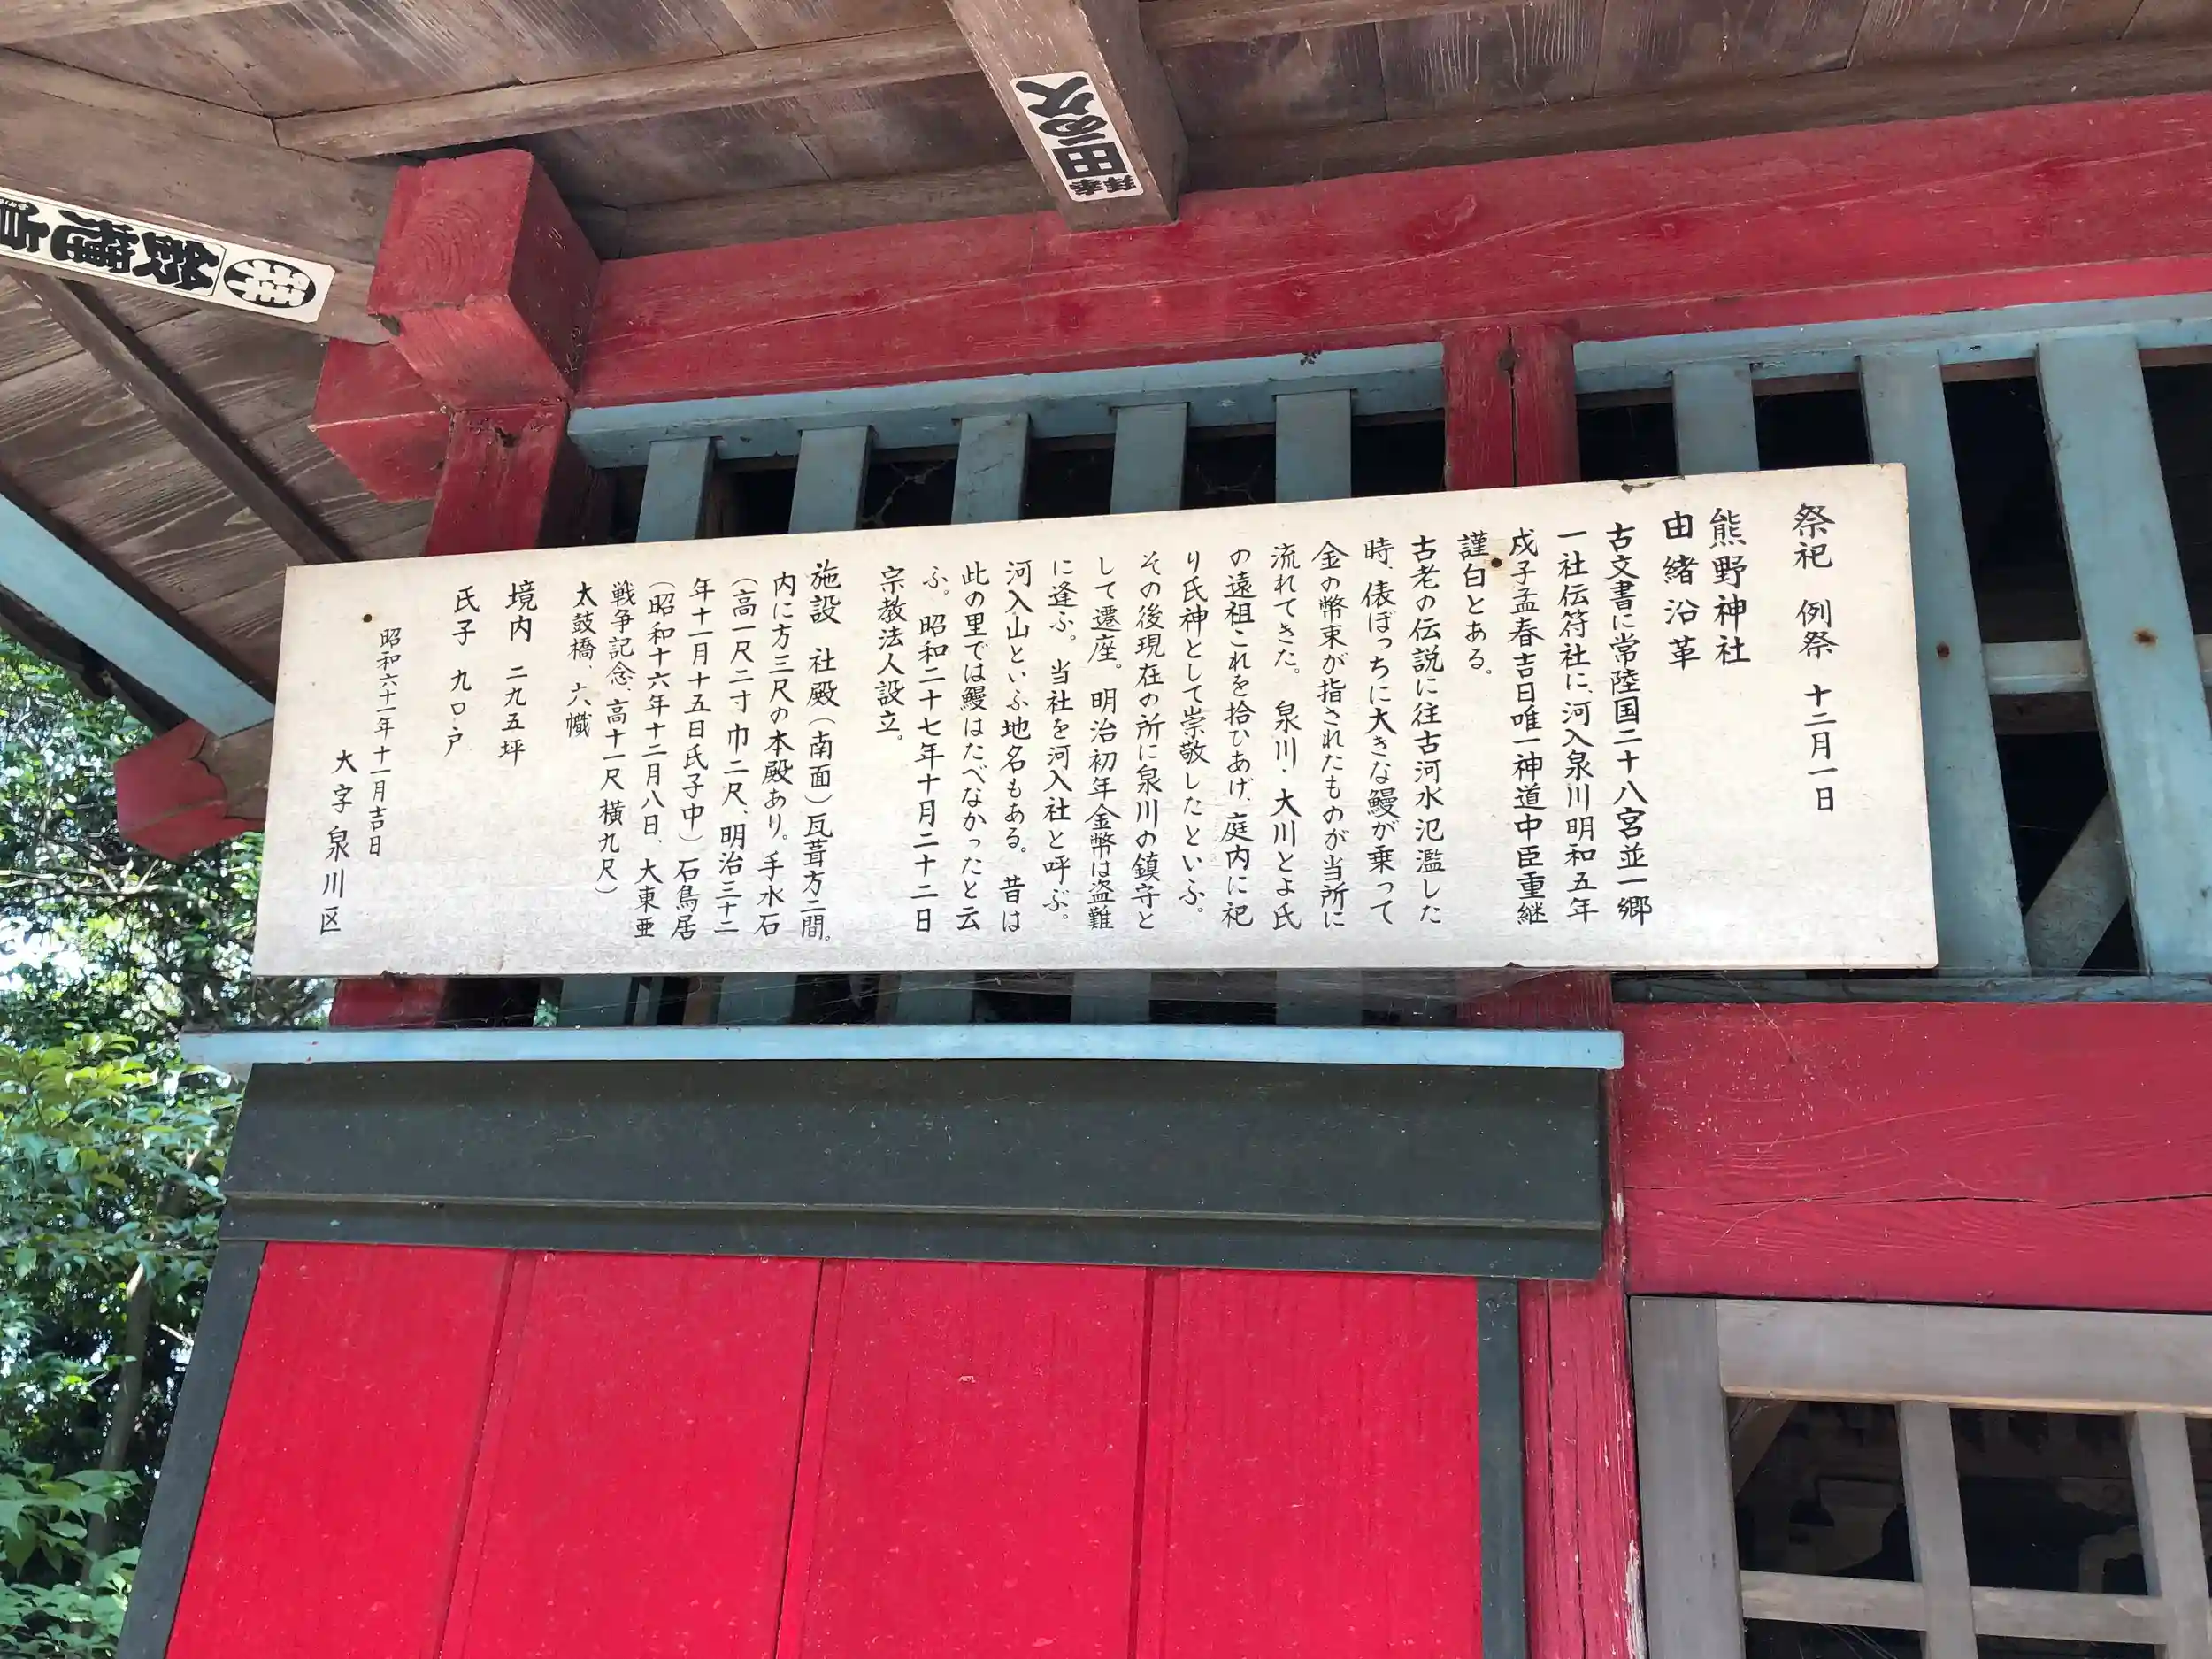 祭祀 例祭 十二月一日
熊野神社
由緒沿革
古文書に常陸国二十八宮並一郷
一社伝符社に、河入泉川明和五年
戊子孟春吉日唯一神道中臣重継
謹白とある。
古老の伝説に往古河水氾濫した
時、俵ぼっちに大きな鰻が乗って
金の幣束が指されたものが当所に
流れてきた。泉川・大川とよ氏
の遠祖これを拾ひあげ、庭内に祀
り氏神として崇敬したといふ。
その後現在の所に泉川の鎮守と
して遷座。明治初年金幣は盗難
に逢ふ。当社を河入社と呼ぶ。
河入山といふ地名もある。昔は
此の里では鰻はたべなかったと云
ふ。昭和二十七年十月二十二日
宗教法人設立。
施設 社殿（南面）瓦葺方二間。
内に方三尺の本殿あり。手水石
（高一尺二寸巾二尺、明治三十二
年十一月十五日氏子中）石鳥居
（昭和十六年十二月八日、大東亜
戦争記念、高十一尺横九尺）
太鼓橋、六幟
境内 二九五坪
氏子 九〇戸
昭和六十一年十一月吉日
大字泉川区
田の久
拝奉